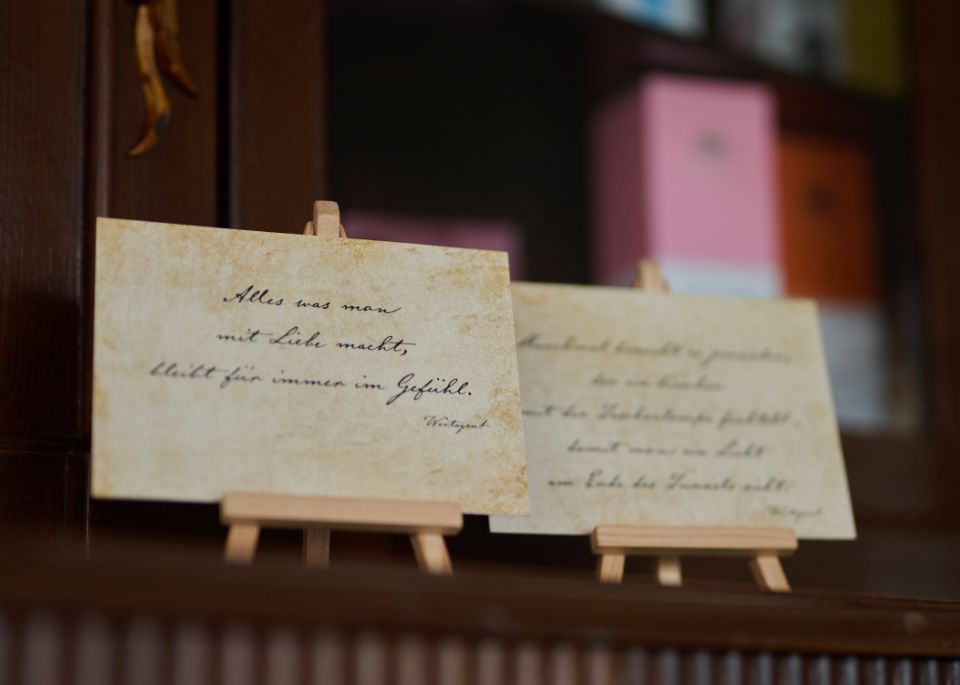 Alles was man
mit Liebe macht,
bleibt für immer im Gefühl.
Wortagent
Manchmal braucht es jemanden,
der ein bisschen
mit der Taschenlampe fuchtelt,
damit man ein Licht
am Ende des Tunnels sieht.
Wortagent